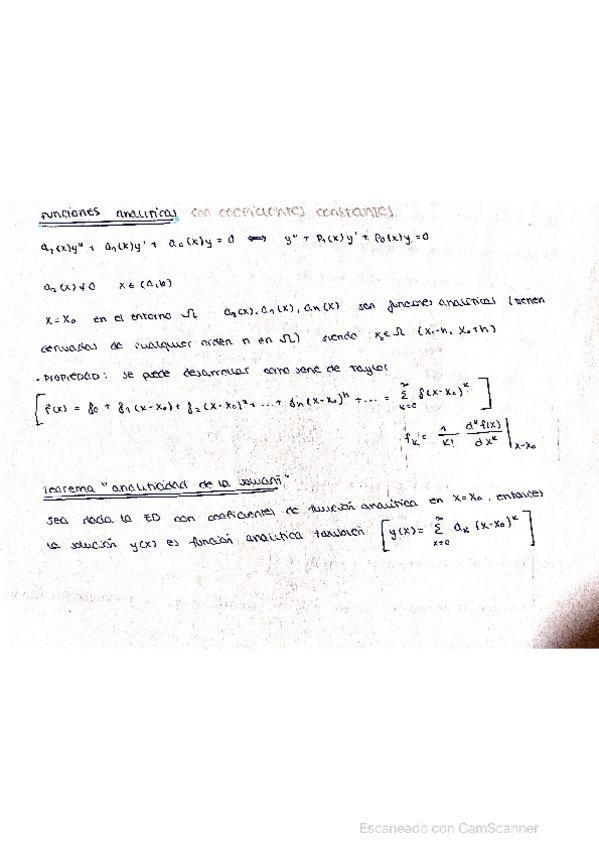 Funciones analiticas con coeficientes constantes.
a₂(x)y'' + a₁(x)y' + a₀(x)y = 0 ⟺ y'' + P₁(x)y' + P₀(x)y = 0
a₂(x) ≠ 0 x ∈ (a,b)
x = x₀ en el entorno Ω a₂(x), a₁(x), an(x) son funciones analíticas (tienen
derivadas de cualquier orden n en Ω) siendo x₀ ∈ Ω (x₀-h, x₀+h)
• PROPIEDAD: se puede desarrollar como serie de Taylor
[f(x) = f₀ + f₁(x-x₀) + f₂(x-x₀)² + ... + fn(x-x₀)ⁿ + ... = ∑_{k=0}^{∞} f(x-x₀)^k]
f_k = 1/k! d^k f(x)/dx^k |_{x-x₀}
Teorema "analiticidad de la
sea dada la ED con coeficientes de función analítica en x=x₀, entonces
la solución y(x) es función analítica también. [y(x) = ∑_{k=0}^{∞} a_k (x-x₀)^k]
Escaneado con CamScanner